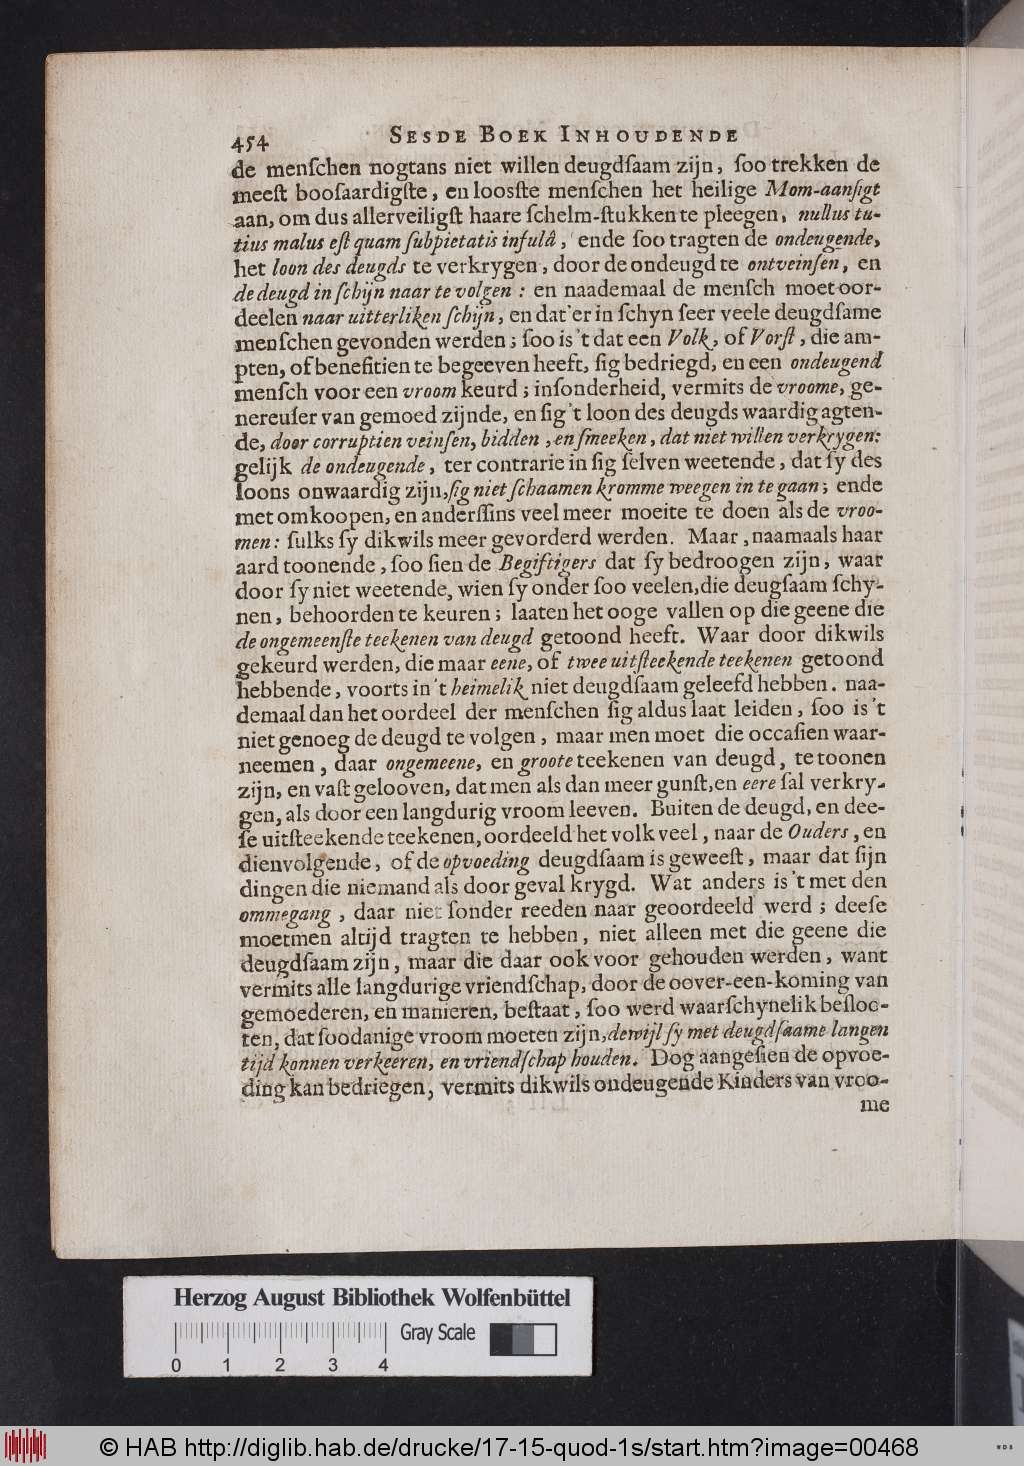 454 SESDE BOEK INHOUDENDE
de menſchen nogtans niet willen deugdſaam zijn, ſoo trekken de
meeſt booſaardigſte, en looſſte menſchen het heilige Mom-aanſigt
aan, om dus allerveiligſt haare ſchelm-ſtukken te pleegen, nullus tu-
tius malus eſt quam ſubpietatis infulâ, ende ſoo tragten de ondeugende,
het loon des deugds te verkrygen, door de ondeugd te ontveinſen, en
de deugd in ſchijn naar te volgen: en naademaal de menſch moet oor-
deelen naar uitterliken ſchijn, en dat'er in ſchyn ſeer veele deugdſame
menſchen gevonden werden; ſoo is't dat een Volk, of Vorſt, die am-
pten, of benefitien te begeeven heeft, ſig bedriegd, en een ondeugend
menſch voor een vroom keurd; inſonderheid, vermits de vroome, ge-
nereuſer van gemoed zijnde, en ſig't loon des deugds waardig agten-
de, door corruptien veinſen, bidden, en ſmeeken, dat niet willen verkrygen:
gelijk de ondeugende, ter contrarie in ſig ſelven weetende, dat ſy des
loons onwaardig zijn, ſig niet ſchaamen kromme weegen in te gaan; ende
met omkoopen, en anderſſins veel meer moeite te doen als de vroo-
men: ſulks ſy dikwils meer gevorderd werden. Maar, naamaals haar
aard toonende, ſoo ſien de Begiftigers dat ſy bedroogen zijn, waar
door ſy niet weetende, wien ſy onder ſoo veelen, die deugſaam ſchy-
nen, behoorden te keuren; laaten het ooge vallen op die geene die
de ongemeenſte teekenen van deugd getoond heeft. Waar door dikwils
gekeurd werden, die maar eene, of twee uitſteekende teekenen getoond
hebbende, voorts in't heimelik niet deugdſaam geleefd hebben. naa-
demaal dan het oordeel der menſchen ſig aldus laat leiden, ſoo is't
niet genoeg de deugd te volgen, maar men moet die occaſien waar-
neemen, daar ongemeene, en groote teekenen van deugd, te toonen
zijn, en vaſt gelooven, dat men als dan meer gunſt, en eere ſal verkry-
gen, als door een langdurig vroom leeven. Buiten de deugd, en dee-
ſe uitſteekende teekenen, oordeeld het volk veel, naar de Ouders, en
dienvolgende, of de opvoeding deugdſaam is geweeſt, maar dat ſijn
dingen die niemand als door geval krygd. Wat anders is't met den
ommegang, daar niet ſonder reeden naar geoordeeld werd; deeſe
moetmen altijd tragten te hebben, niet alleen met die geene die
deugdſaam zijn, maar die daar ook voor gehouden werden, want
vermits alle langdurige vriendſchap, door de oover-een-koming van
gemoederen, en manieren, beſtaat, ſoo werd waarſchynelik beſloo-
ten, dat ſoodanige vroom moeten zijn, dewijl ſy met deugdſaame langen
tijd konnen verkeeren, en vriendſchap houden. Dog aangeſien de opvoe-
ding kan bedriegen, vermits dikwils ondeugende Kinders van vroo-
me
Herzog August Bibliothek Wolfenbüttel
Gray Scale
0 1 2 3 4
© HAB http://diglib.hab.de/drucke/17-15-quod-1s/start.htm?image=00468